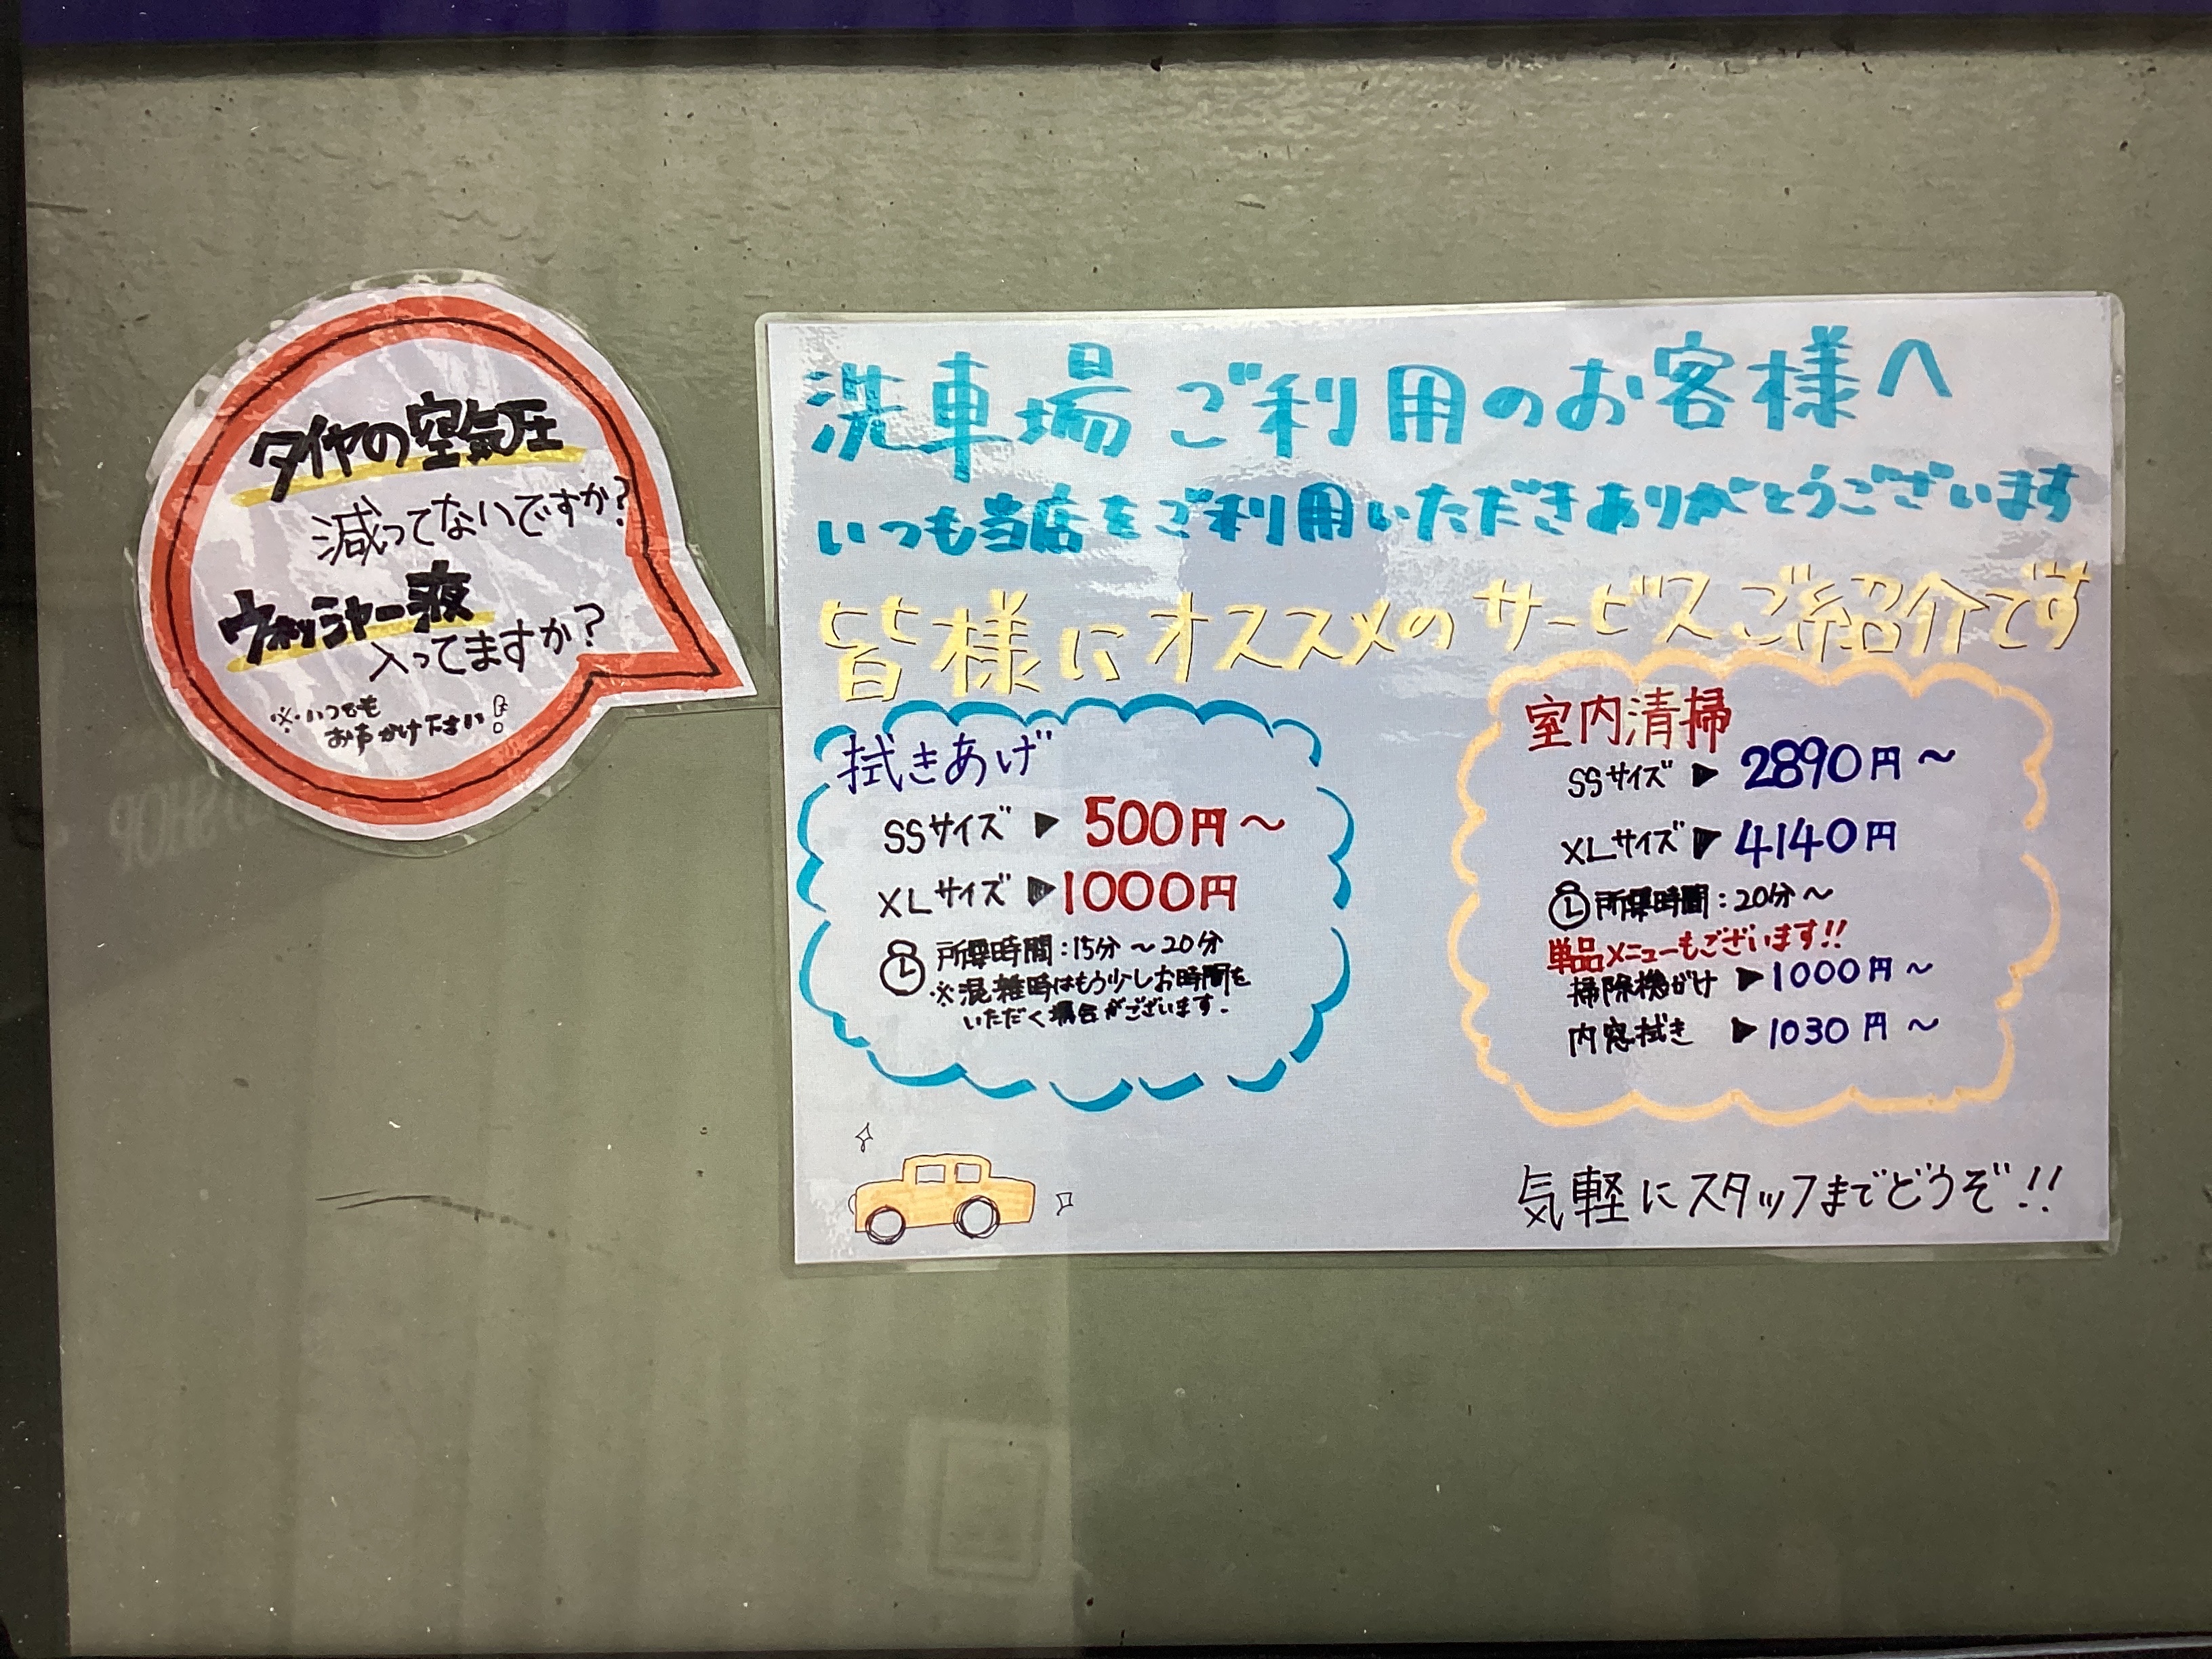 タイヤの空気圧
減ってないですか?
ウォッシャー液
入ってますか?
※いつでも
お声かけ下さい!
洗車場ご利用のお客様へ
いつも当店をご利用いただきありがとうございます
皆様にオススメのサービスご紹介です
拭きあげ
SSサイズ ▶ 500円〜
XLサイズ ▶ 1000円
所要時間:15分〜20分
※混雑時はもう少しお時間を
いただく場合がございます.
室内清掃
SSサイズ ▶ 2890円〜
XLサイズ ▶ 4140円
所要時間:20分〜
単品メニューもございます!!
掃除機がけ ▶ 1000円〜
内窓拭き ▶ 1030円〜
気軽にスタッフまでどうぞ!!